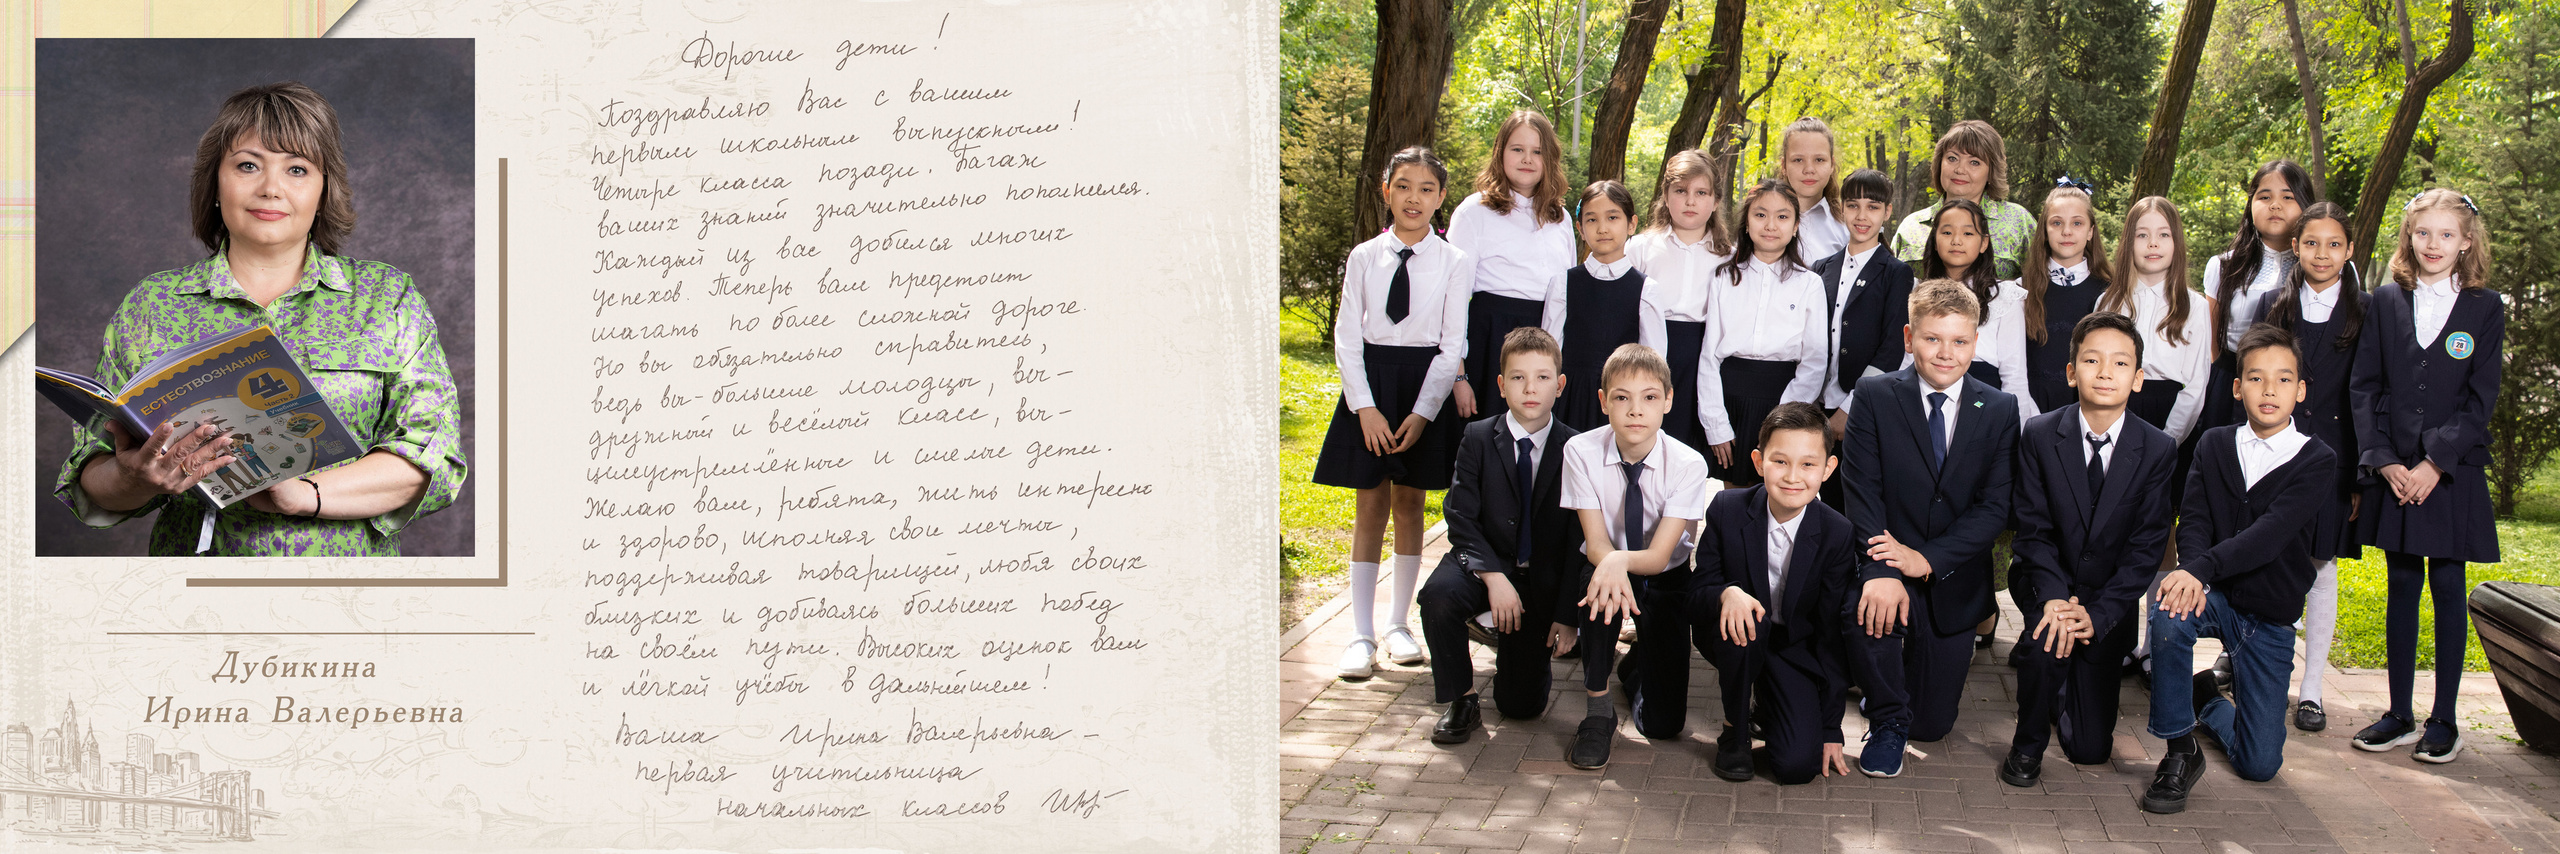 Дорогие дети!
Поздравляю Вас с вашим
первым школьным выпускным!
Четыре класса позади. Багаж
ваших знаний значительно пополнился.
Каждый из вас добился многих
успехов. Теперь вам предстоит
шагать по более сложной дороге.
Но вы обязательно справитесь,
ведь вы-большие молодцы, вы-
дружный и весёлый класс, вы-
целеустремлённые и смелые дети.
Желаю вам, ребята, жить интересно
и здорово, исполняя свои мечты,
поддерживая товарищей, любя своих
близких и добиваясь больших побед
на своём пути. Высоких оценок вам
и лёгкой учёбы в дальнейшем!
Ваша Ирина Валерьевна -
первая учительница
начальных классов
ЕСТЕСТВОЗНАНИЕ
4
Часть 2
Учебник
Дубикина
Ирина Валерьевна
28